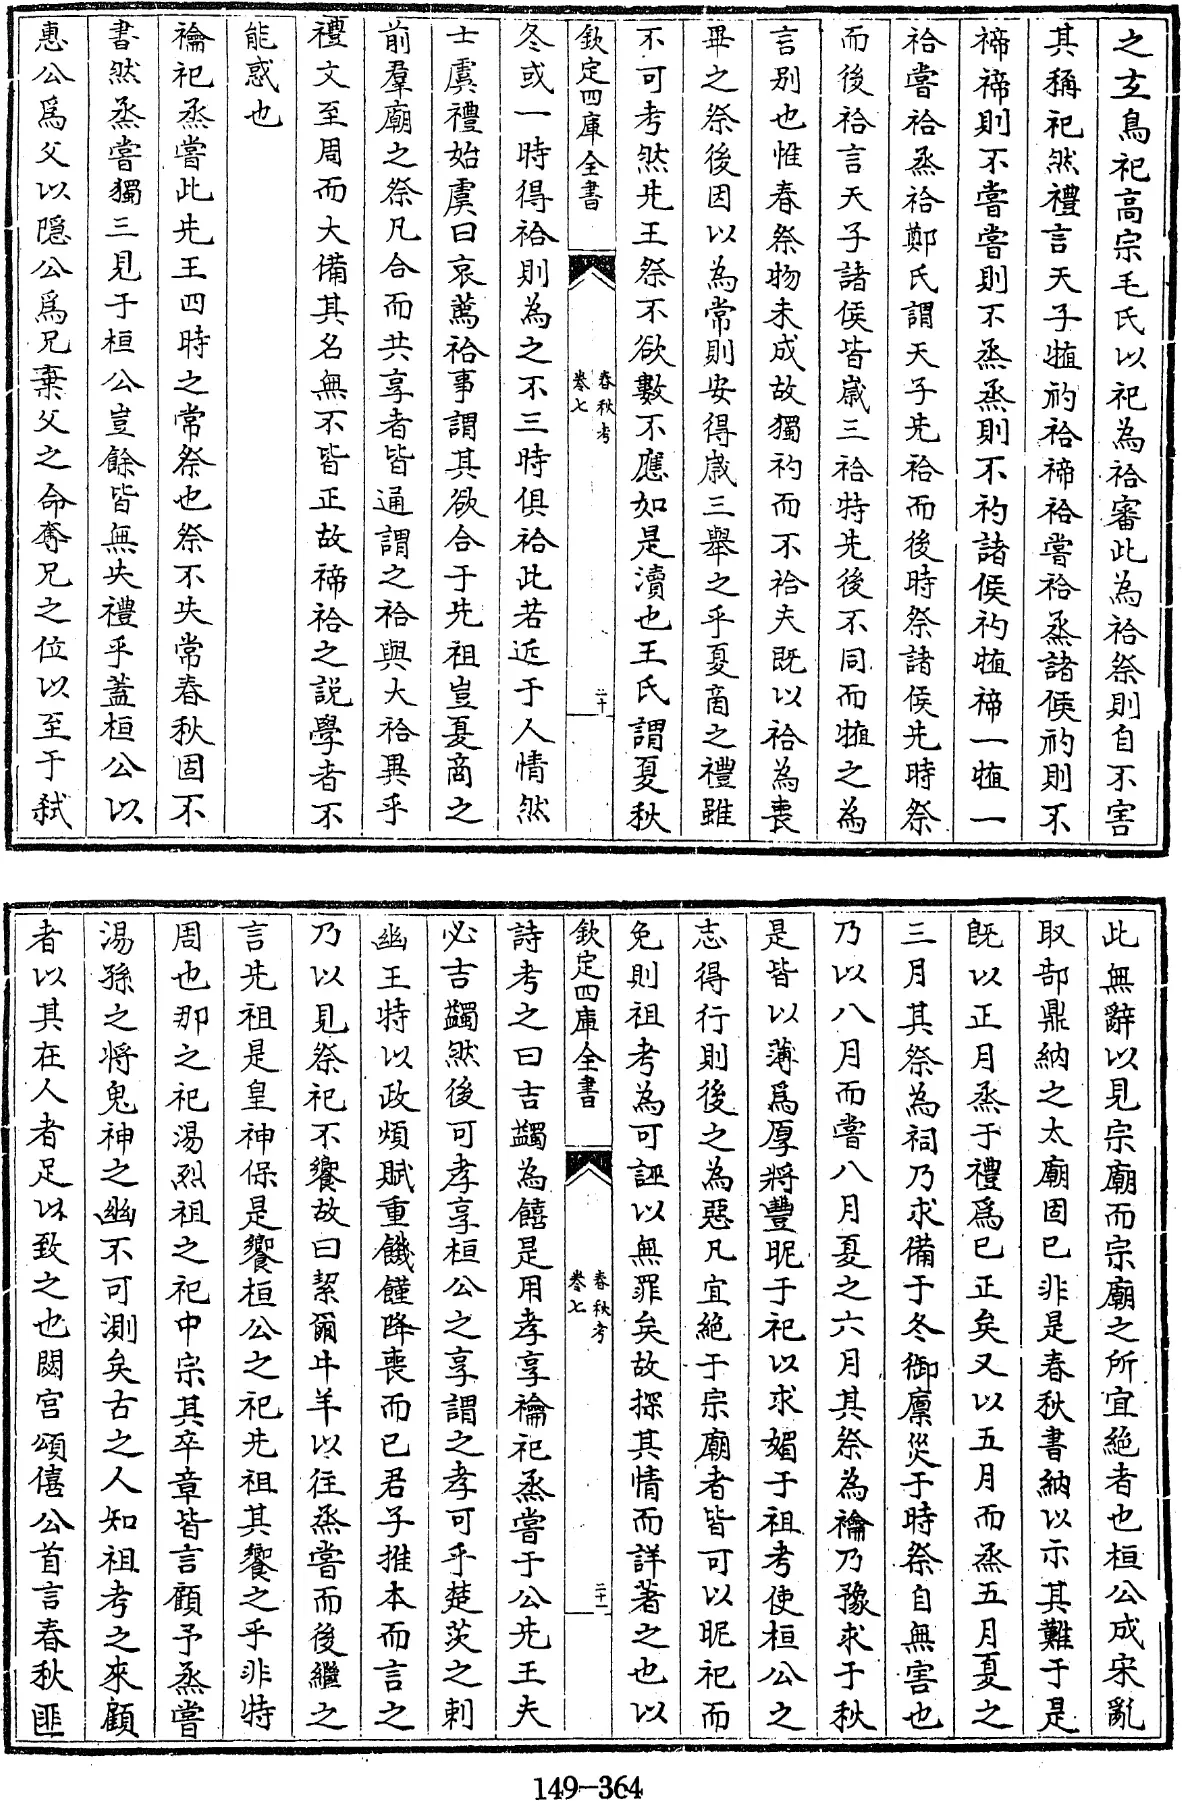 之玄鳥祀高宗毛氏以祀為祫審此為祫祭則自不害
其稱祀然禮言天子犆礿祫禘祫嘗祫烝諸侯礿則不
禘禘則不嘗嘗則不烝烝則不礿諸侯礿犆禘一犆一
祫嘗祫烝祫鄭氏謂天子先祫而後時祭諸侯先時祭
而後祫言天子諸侯皆嵗三祫特先後不同而犆之為
言別也惟春祭物未成故獨礿而不祫夫既以祫為喪
畢之祭後因以為常則安得嵗三舉之乎夏商之禮雖
不可考然先王祭不欲數不應如是瀆也王氏謂夏秋
欽定四庫全書
春秋考
卷七
二十
冬或一時得祫則為之不三時俱祫此若近于人情然
士虞禮始虞曰哀薦祫事謂其欲合于先祖豈夏商之
前羣廟之祭凡合而共享者皆通謂之祫與大祫異乎
禮文至周而大備其名無不皆正故禘祫之説學者不
能惑也
禴祀烝嘗此先王四時之常祭也祭不失常春秋固不
書然烝嘗獨三見于桓公豈餘皆無失禮乎蓋桓公以
惠公爲父以隠公爲兄棄父之命奪兄之位以至于弑
此無辭以見宗廟而宗廟之所宜絶者也桓公成宋亂
取郜鼎納之太廟固已非是春秋書納以示其難于是
既以正月烝于禮爲已正矣又以五月而烝五月夏之
三月其祭為祠乃求備于冬御廩災于時祭自無害也
乃以八月而嘗八月夏之六月其祭為禴乃豫求于秋
是皆以薄爲厚將豐昵于祀以求媚于祖考使桓公之
志得行則後之為惡凡宜絶于宗廟者皆可以昵祀而
免則祖考為可誣以無罪矣故探其情而詳著之也以
欽定四庫全書
春秋考
卷七
二十一
詩考之曰吉蠲為饎是用孝享禴祀烝嘗于公先王夫
必吉蠲然後可孝享桓公之享謂之孝可乎楚茨之刺
幽王特以政煩賦重饑饉降喪而已君子推本而言之
乃以見祭祀不饗故曰絜爾牛羊以往烝嘗而後繼之
言先祖是皇神保是饗桓公之祀先祖其饗之乎非特
周也那之祀湯烈祖之祀中宗其卒章皆言顧予烝嘗
湯孫之將鬼神之幽不可測矣古之人知祖考之來顧
者以其在人者足以致之也閟宮頌僖公首言春秋匪
149-364